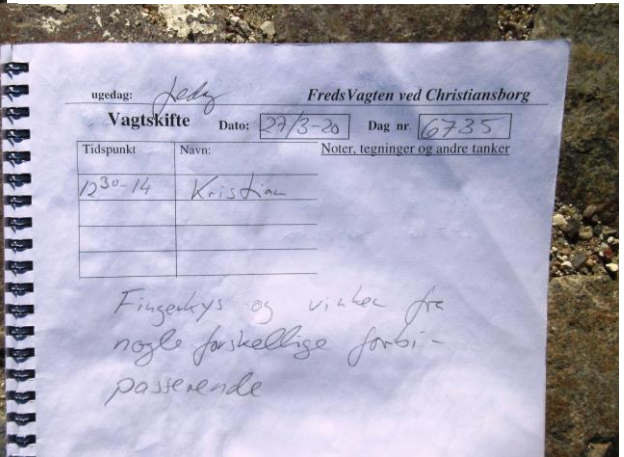 ugedag: fredag FredsVagten ved Christiansborg
Vagtskifte Dato: 27/3-20 Dag nr. 6735
Tidspunkt Navn: Noter, tegninger og andre tanker
12³⁰-14 Kristian
Fingerkys og vinken fra
nogle forskellige forbi-
passerende